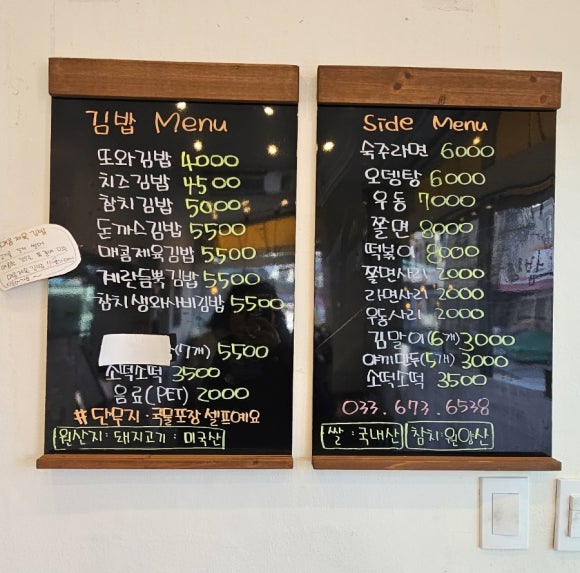 김밥 Menu
또와김밥 4000
치즈김밥 4500
참치김밥 5000
돈까스김밥 5500
매콤제육김밥 5500
계란듬뿍김밥 5500
참치생와사비김밥 5500
(7개) 5500
소떡소떡 3500
음료(PET) 2000
#단무지·국물포장 셀프예요
원산지: 돼지고기: 미국산
Side Menu
숙주라면 6000
오뎅탕 6000
우동 7000
쫄면 8000
떡볶이 8000
쫄면사리 2000
라면사리 2000
우동사리 2000
김말이(6개) 3000
야끼만두(5개) 3000
소떡소떡 3500
033.673.6538
쌀:국내산 참치:원양산